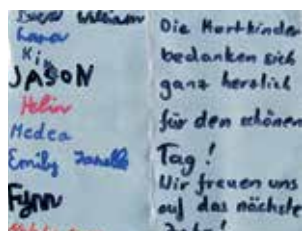 William
Lana
Ki
JASON
Helin
Medea
Emily
Fynn
Die Hortkinder
bedanken sich
ganz herzlich
für den schönen
Tag!
Wir freuen uns
auf das nächste